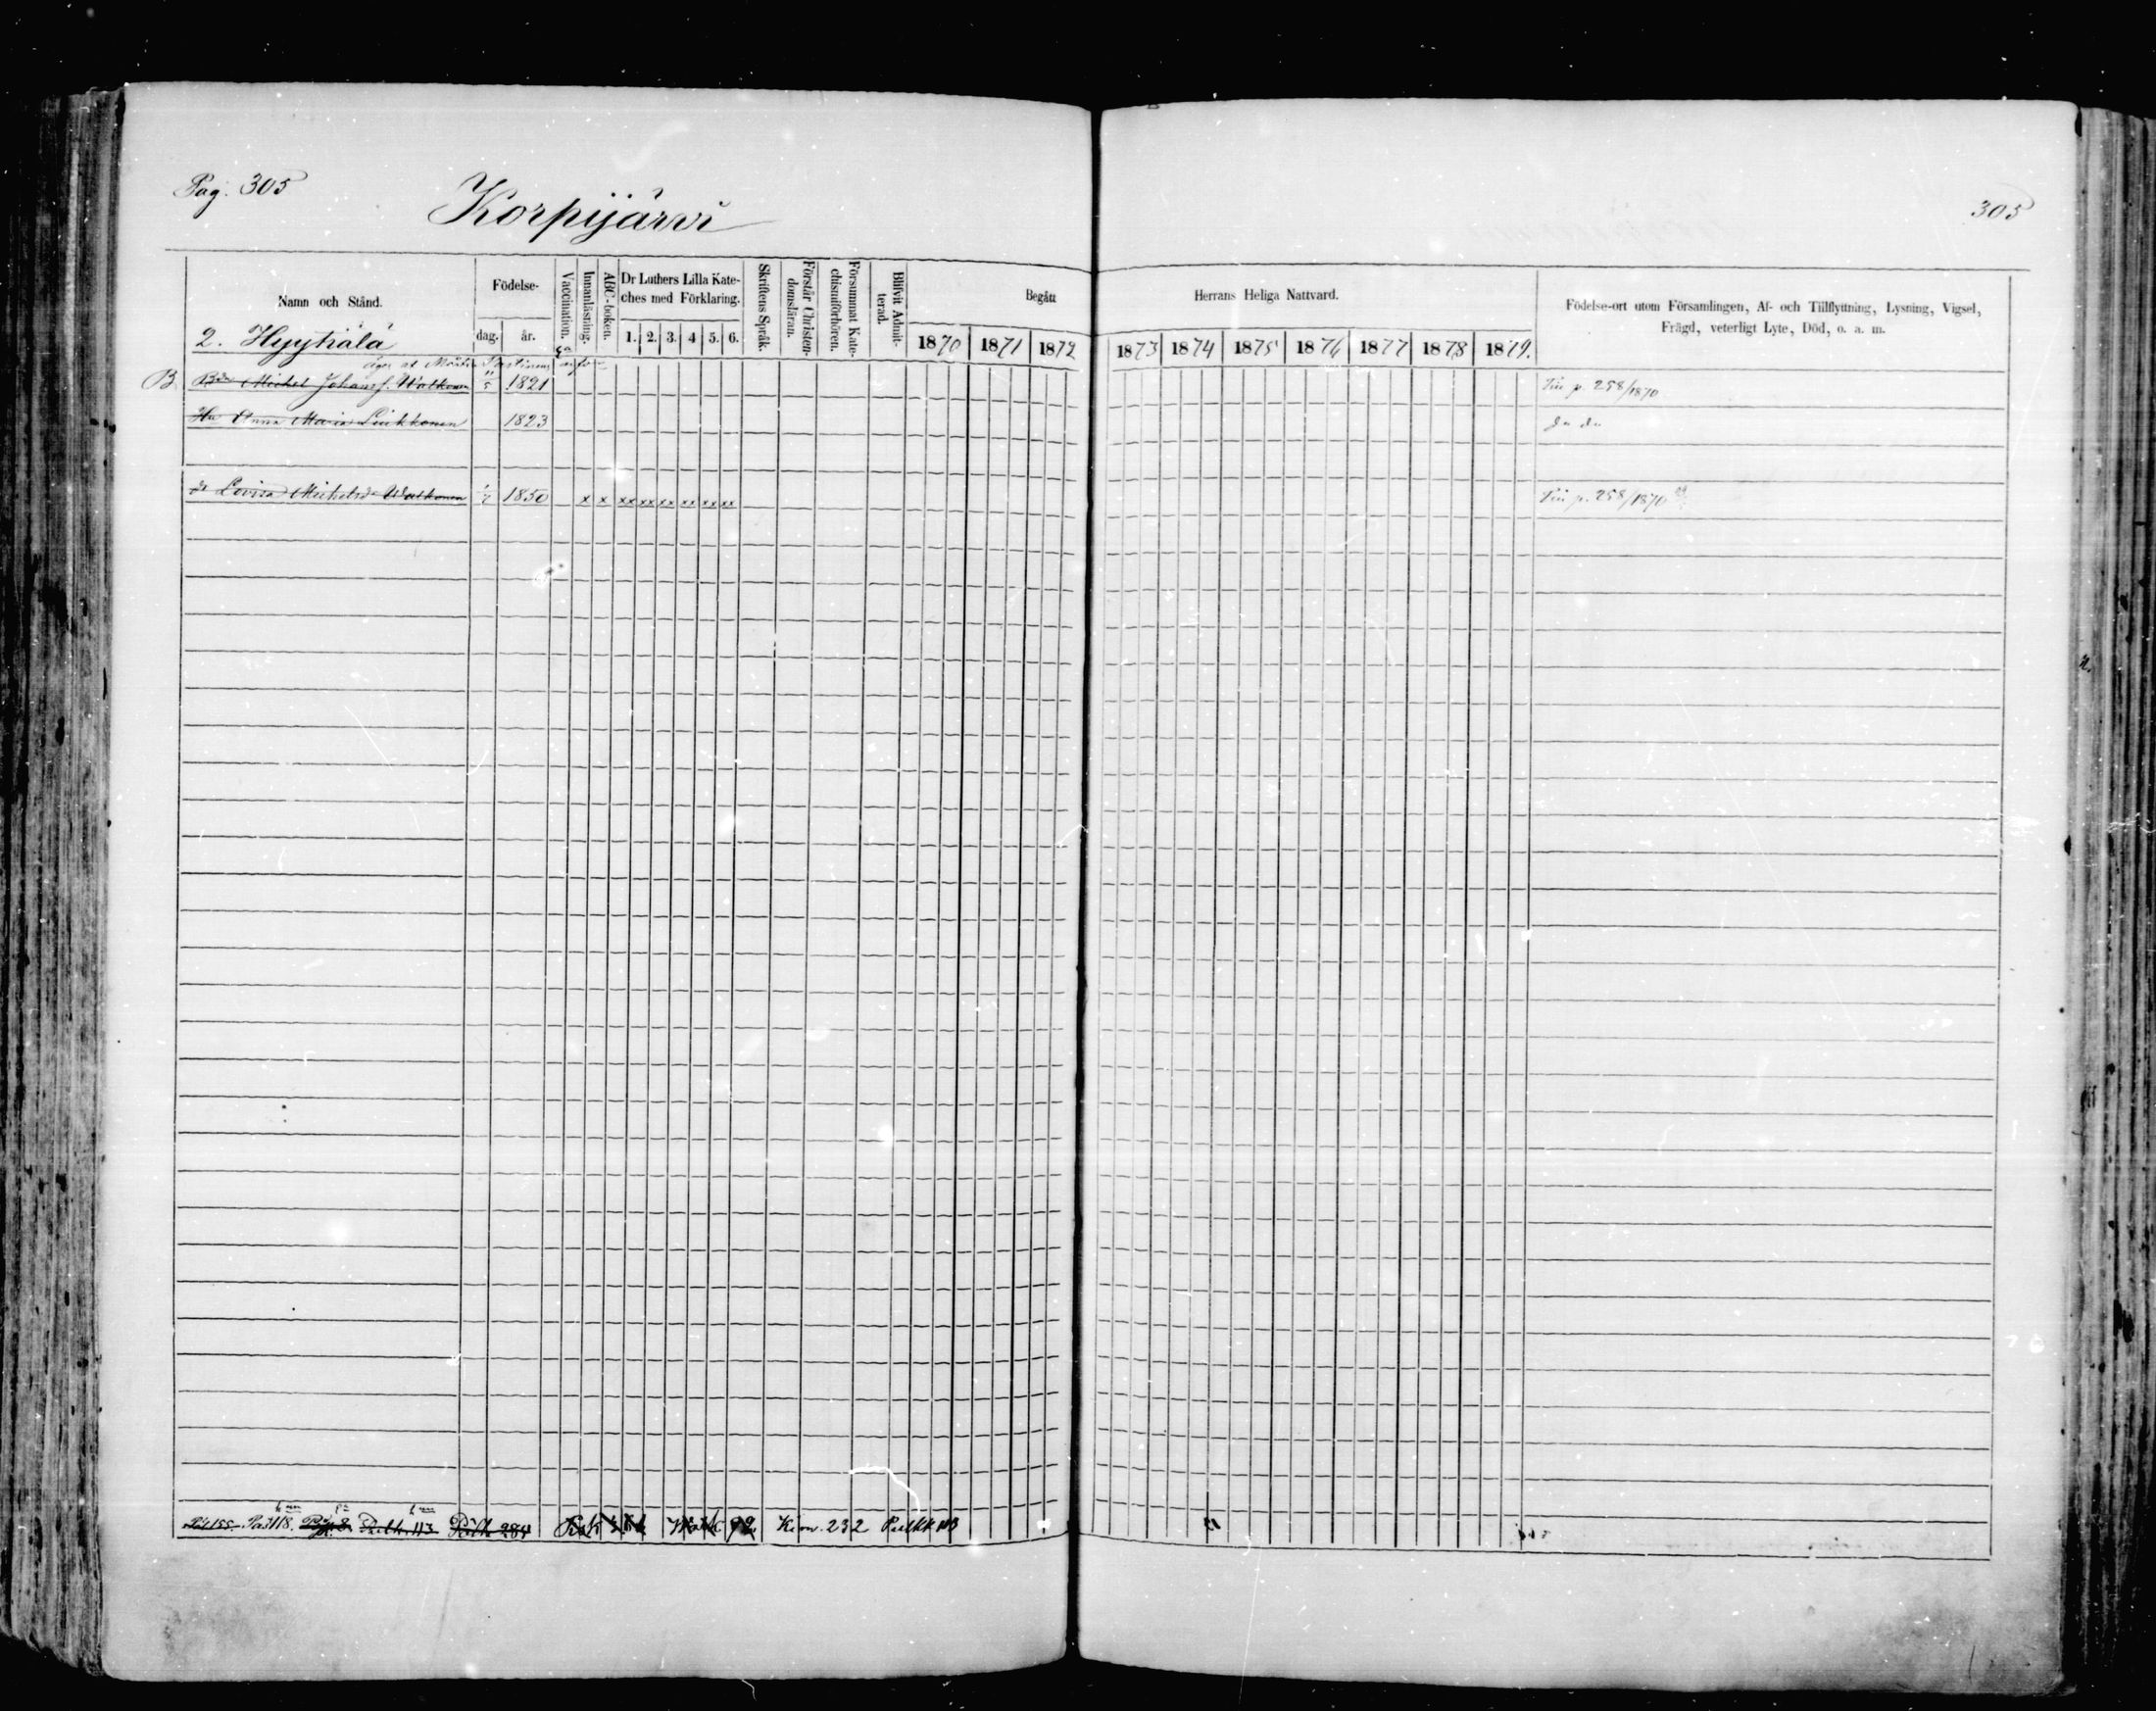 Pag. 305
Korpijärvi
305
Namn och Stånd.
Födelse-
dag.
år.
Vaccination.
Innanläsning.
ABC-boken.
Dr Luthers Lilla Kate-
ches med Förklaring.
1. 2. 3. 4 5. 6.
Skriftens Språk.
Förstår Christen-
domsläran.
Försummat Kate-
chismiförhören.
Blifvit Admit-
terad.
Begått
Herrans Heliga Nattvard.
1870 1871 1872 1873 1874 1875 1876 1877 1878 1879.
Födelse-ort utom Församlingen, Af- och Tillflyttning, Lysning, Vigsel,
Frägd, veterligt Lyte, Död, o. a. m.
2. Hyytiälä
B. Bdn Michel Johansf. Watkonen 5 1821 p. 258/1870
Hu Anna Maria Liukkonen 1823 do do
dr Lovisa Michelsd. Watkonen 1850 x x xx xx xx xx xx xx p. 258/1870
118. 113 284 92 Kinn. 232 Pulkk 113